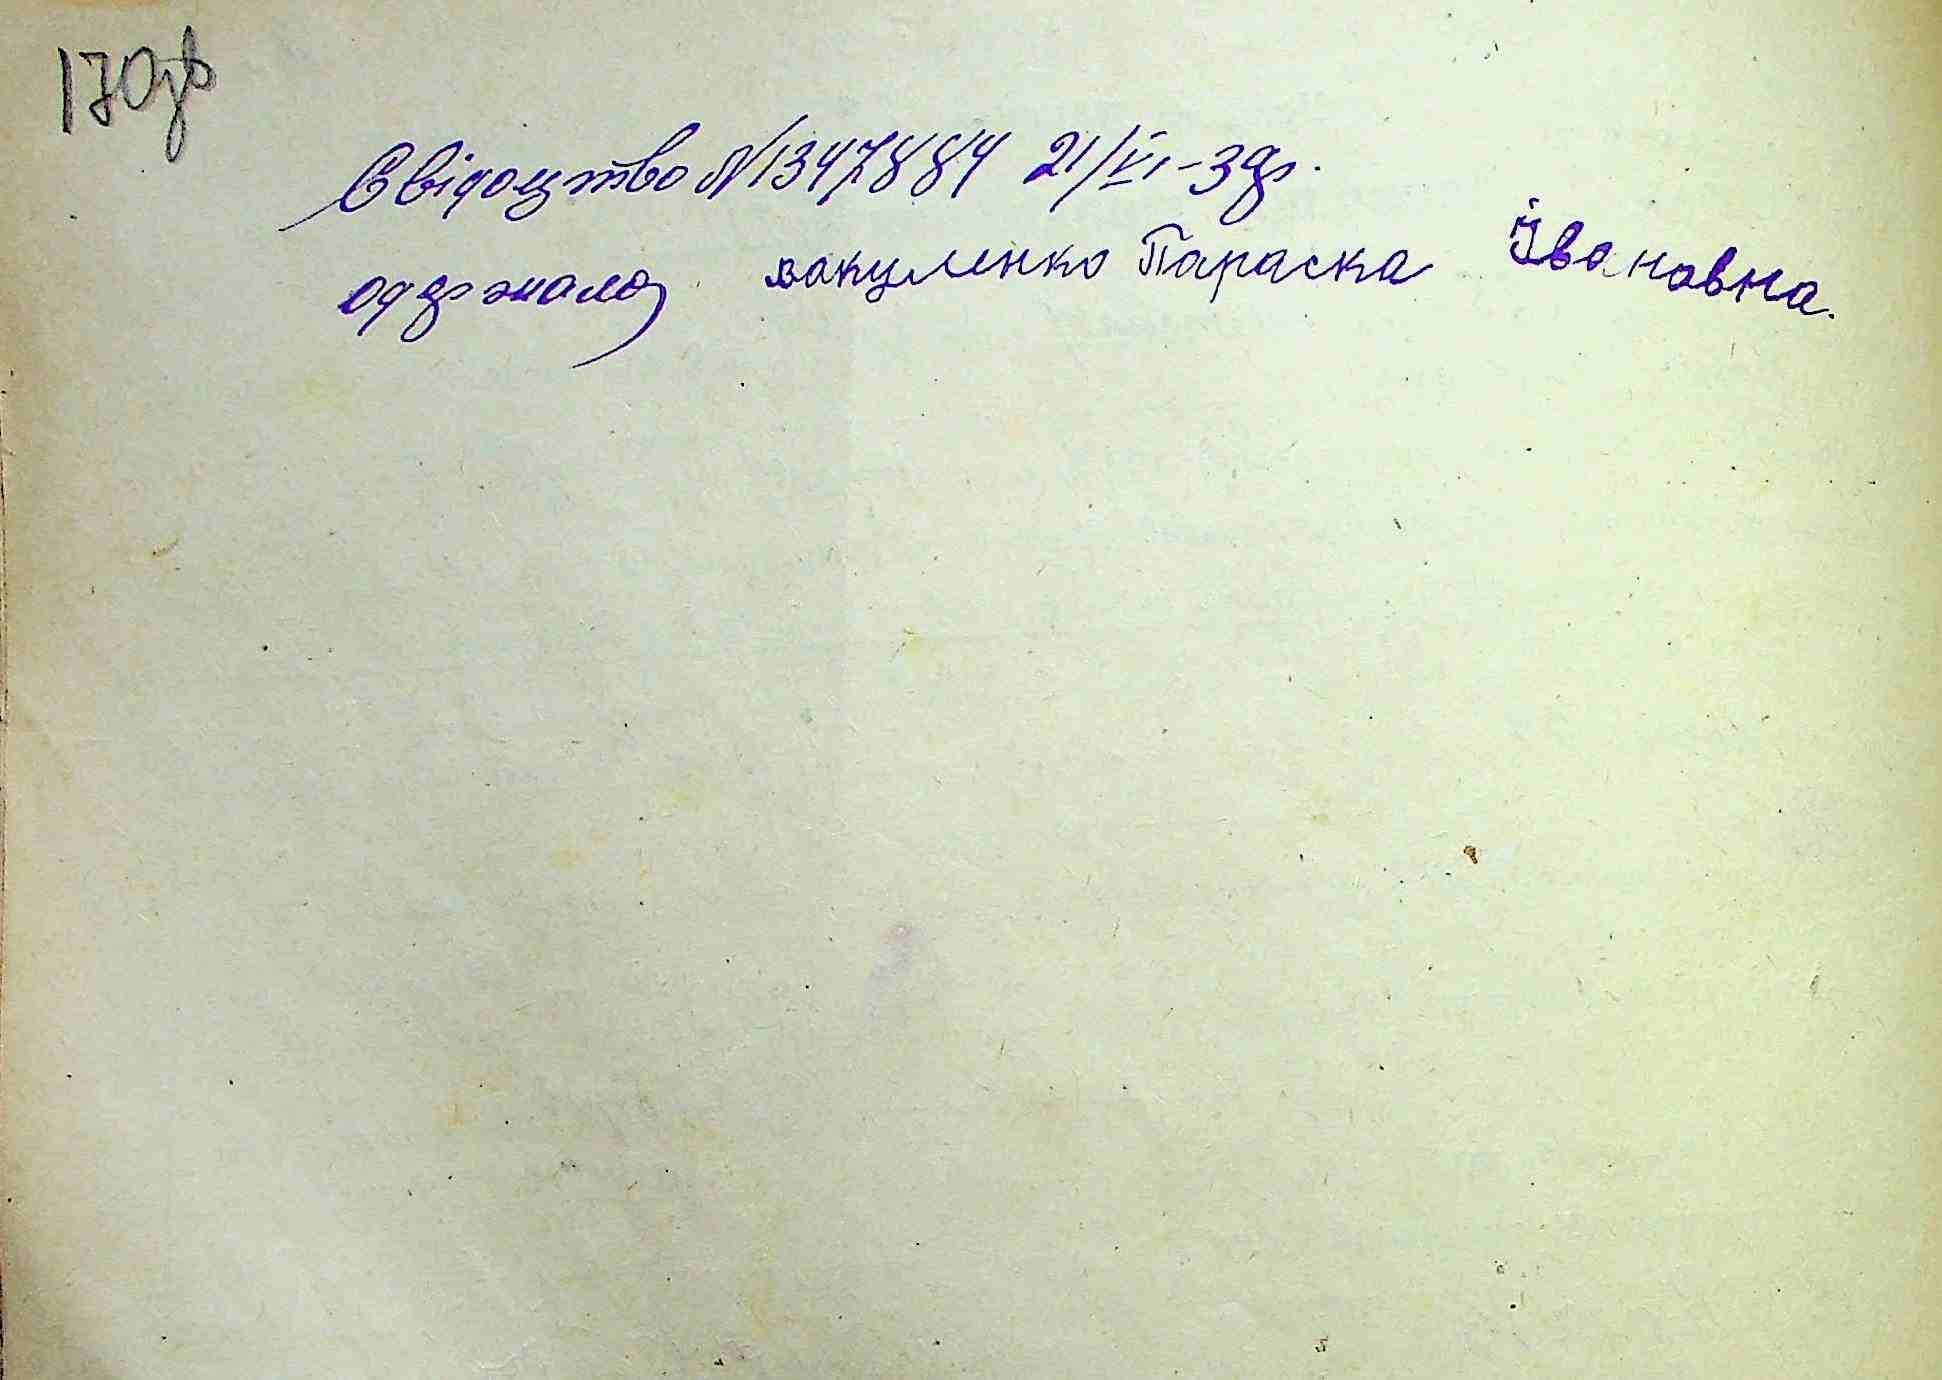 170зв
Свідоцтво N1347884 21/VI-39р.
одержала вакуленко Параска Івановна.